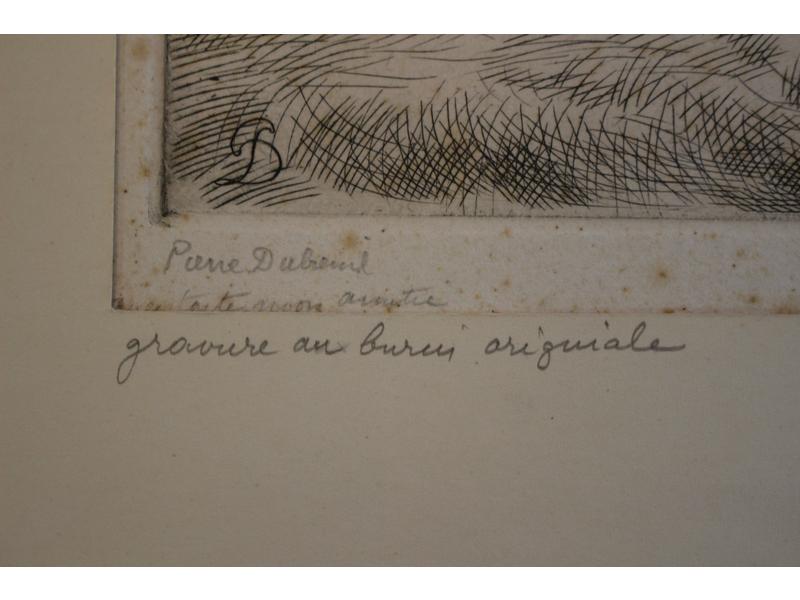 Pierre Dubreuil
toute mon amitié
gravure au burin originale